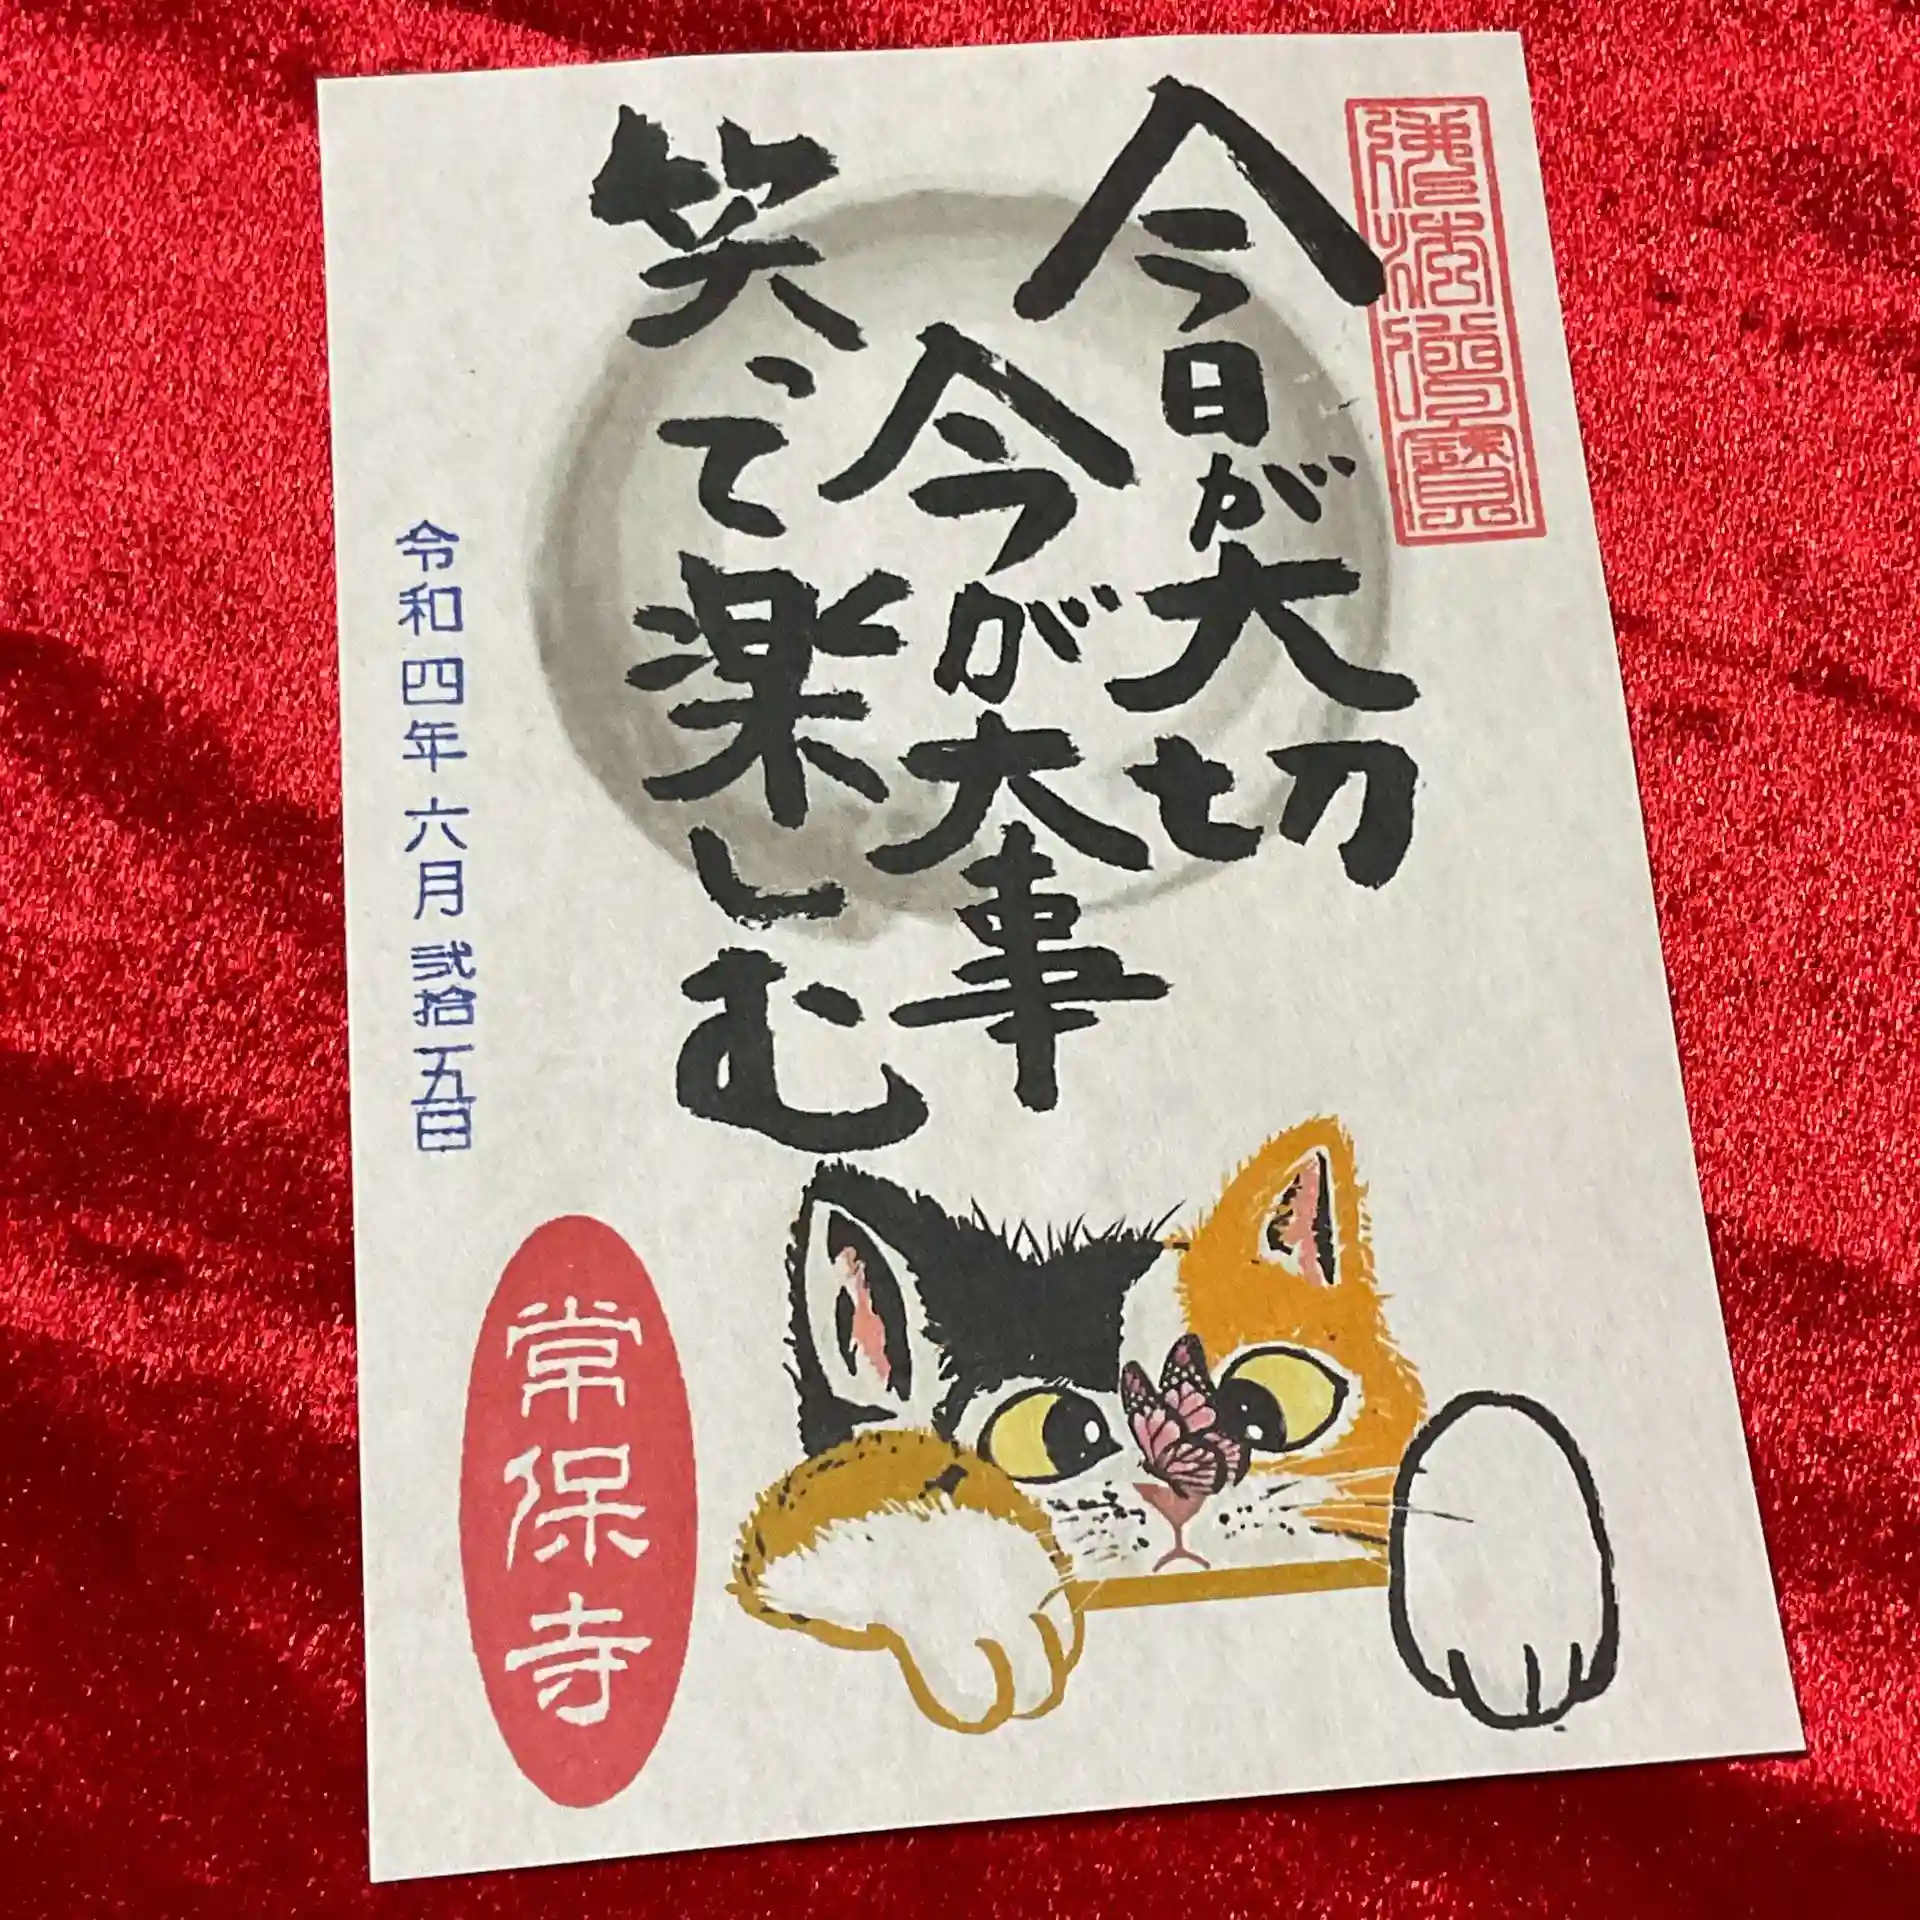 佛法僧寶
今日が大切
今が大事
笑って楽しむ
令和四年六月弐拾五日
常保寺